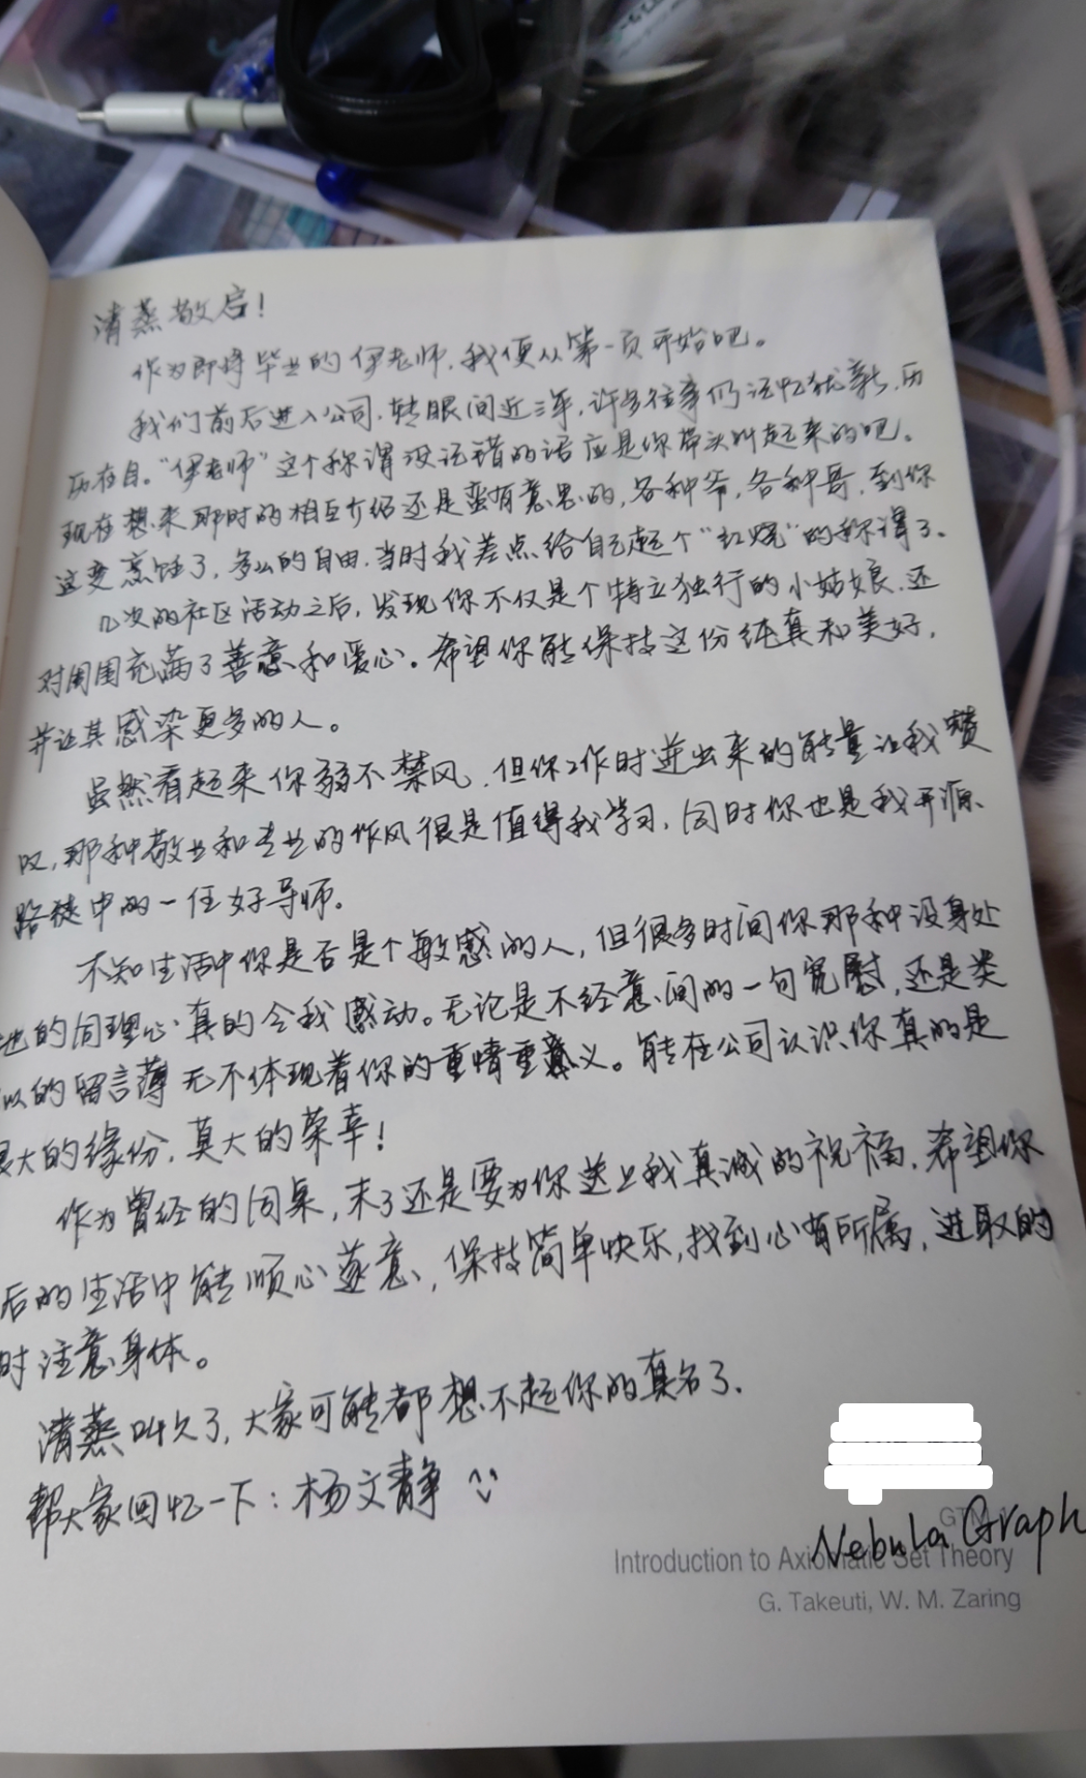 清蒸敬启!
作为即将毕业的伊老师,我便从第一页开始吧。
我们前后进入公司,转眼间近三年,许多往事仍记忆犹新,历
历在目。“伊老师”这个称谓没记错的话应是你带头叫起来的吧。
现在想来那时的相互介绍还是蛮有意思的,各种爷,各种哥,到你
这变烹饪了,多么的自由,当时我差点给自己起个“红烧”的称谓了。
几次的社区活动之后,发现你不仅是个特立独行的小姑娘,还
对周围充满了善意和爱心。希望你能保持这份纯真和美好,
并让其感染更多的人。
虽然看起来你弱不禁风,但你工作时迸出来的能量让我赞
叹,那种敬业和专业的作风很是值得我学习,同时你也是我开源
路徒中的一任好导师。
不知生活中你是否是个敏感的人,但很多时间你那种设身处
地的同理心真的令我感动。无论是不经意间的一句宽慰,还是类
似的留言薄无不体现着你的重情重义。能在公司认识你真的是
最大的缘份,莫大的荣幸!
作为曾经的同桌,末了还是要为你送上我真诚的祝福,希望你
后的生活中能顺心遂意,保持简单快乐,找到心有所属,进取的
时注意身体。
清蒸叫久了,大家可能都想不起你的真名了.
帮大家回忆一下:杨文静
Nebula Graph
GTM
Introduction to Axiomatic Set Theory
G. Takeuti, W. M. Zaring